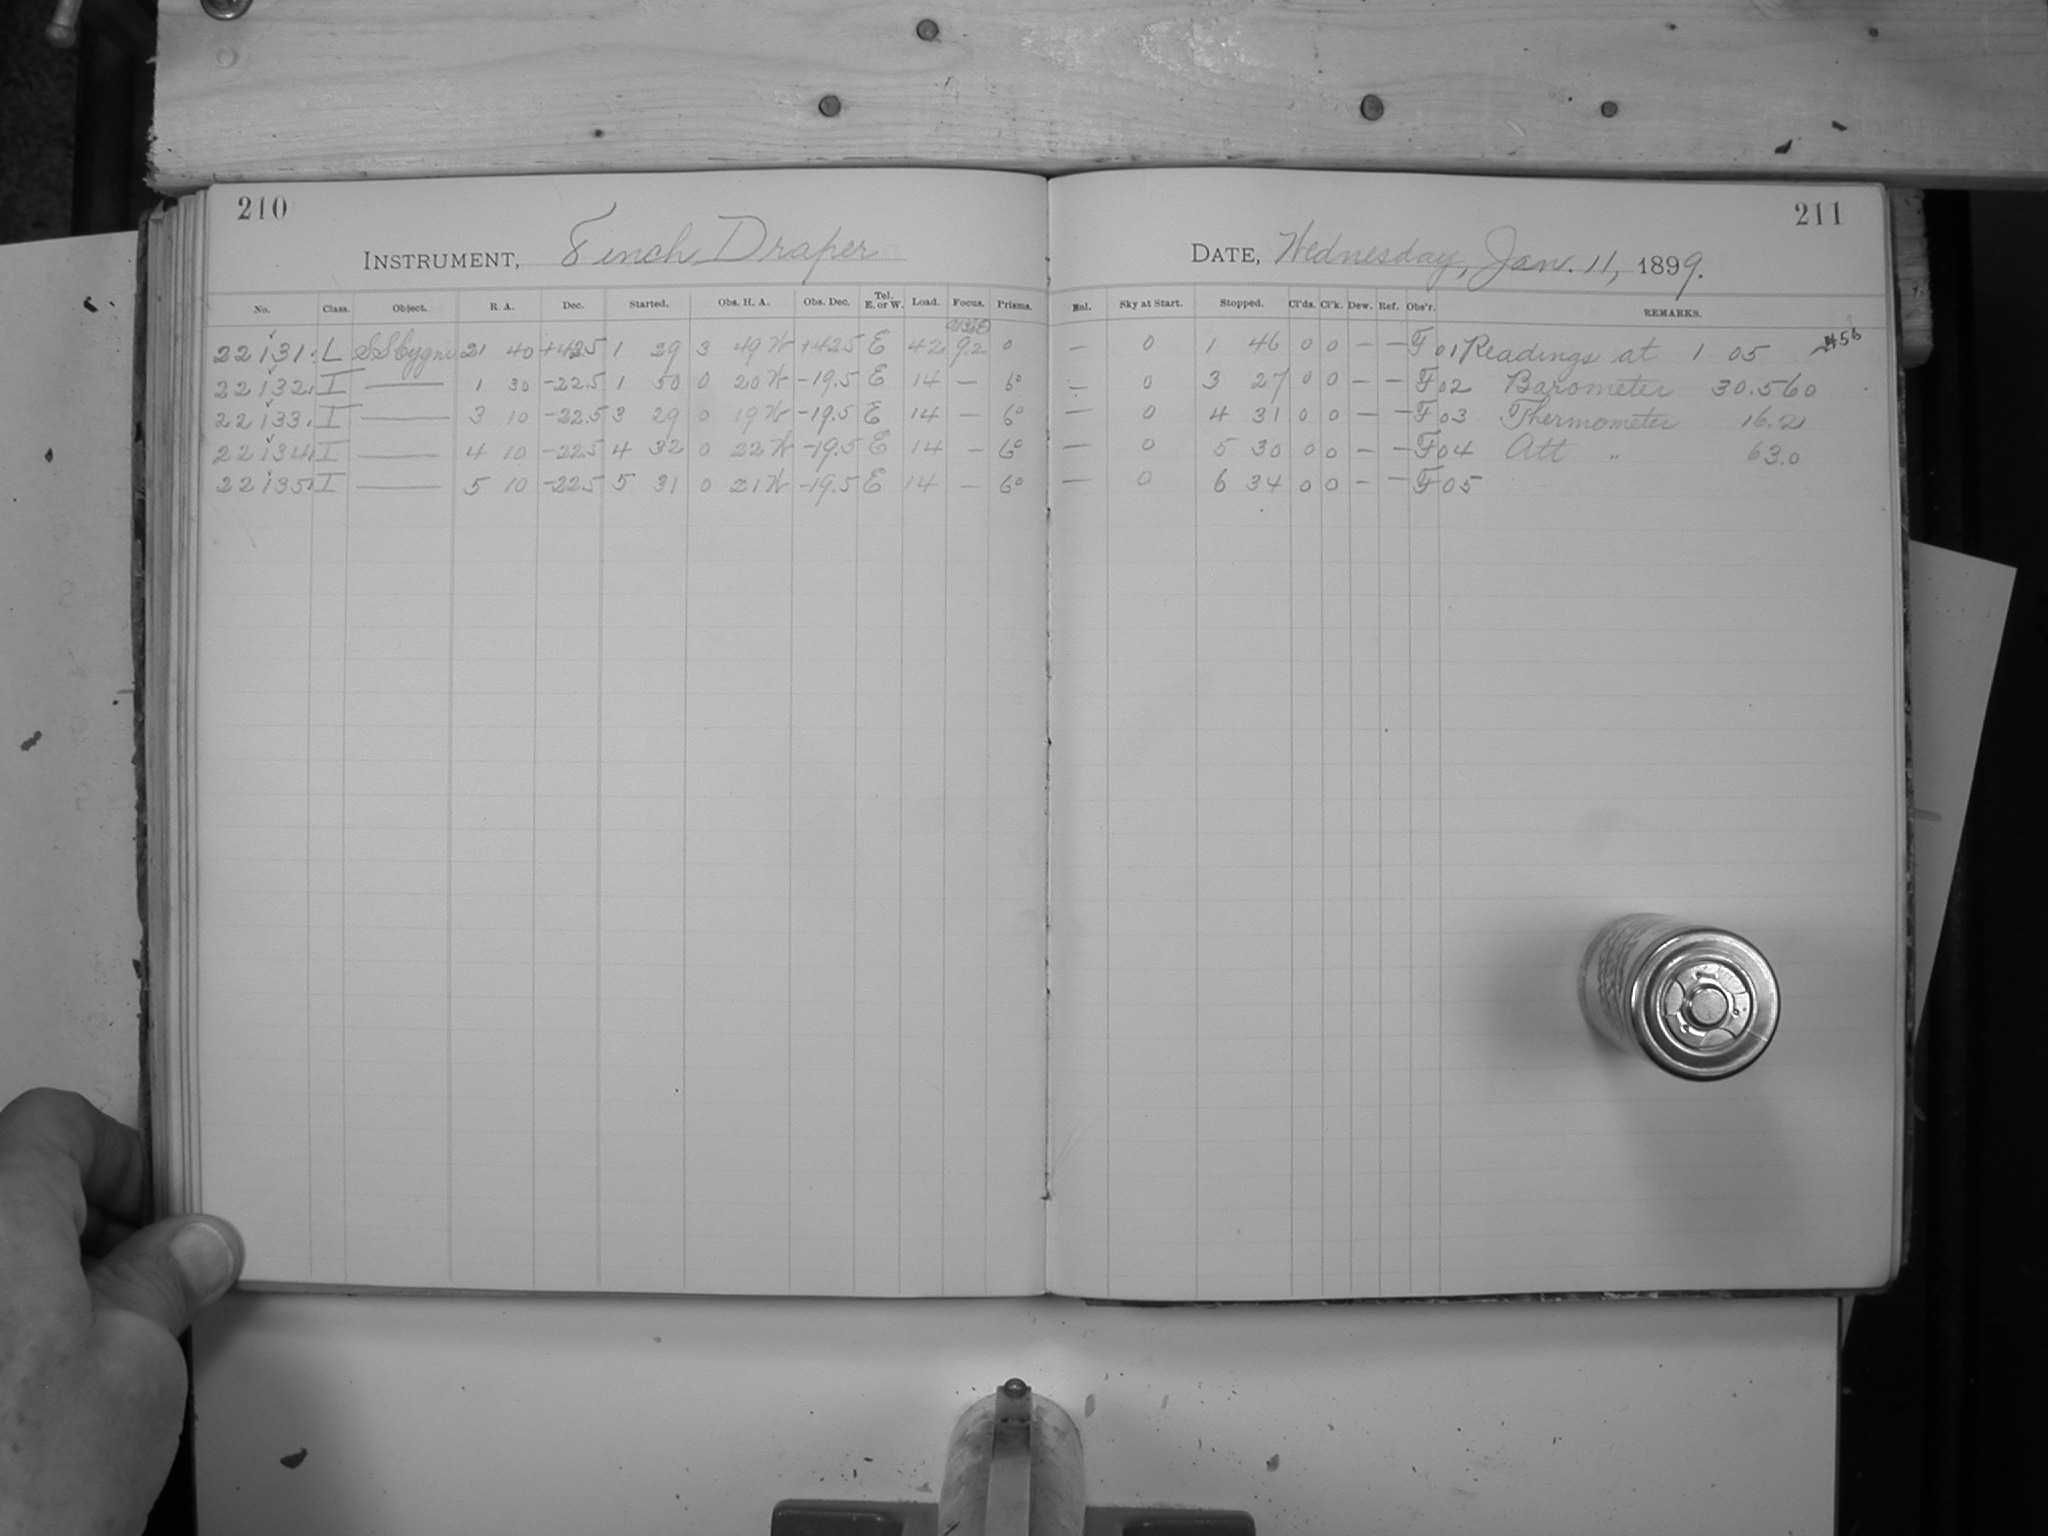 210
INSTRUMENT, 8 inch Draper
No. Class. Object. R. A. Dec. Started. Obs. H. A. Obs. Dec. Tel. E. or W. Load. Focus. Prisms.
22131. L SS Cygni 21 40 +42.5 1 29 3 49 W +42.5 E 42 9.2 0
22132. I — 1 30 -22.5 1 50 0 20 W -19.5 E 14 — 6°
22133. I — 3 10 -22.5 3 29 0 19 W -19.5 E 14 — 6°
22134. I — 4 10 -22.5 4 32 0 22 W -19.5 E 14 — 6°
22135. I — 5 10 -22.5 5 31 0 21 W -19.5 E 14 — 6°
211
DATE, Wednesday, Jan. 11, 1899.
Enl. Sky at Start. Stopped. Cl'ds. Cl'k. Dew. Ref. Obs'r. REMARKS.
— 0 1 46 0 0 — — F 01 Readings at 1 05 456
— 0 3 27 0 0 — — F 02 Barometer 30.560
— 0 4 31 0 0 — — F 03 Thermometer 16.2
— 0 5 30 0 0 — — F 04 Att " 63.0
— 0 6 34 0 0 — — F 05